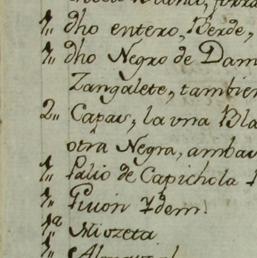 1,, dho entero, Verde,
1,, dho Negro de Dam
Zangalete, tambien
2,, Capas, la vna Bla
otra Negra, ambas
1,, Palio de Capichola
1,, Guion Ydem
1,,
1,,